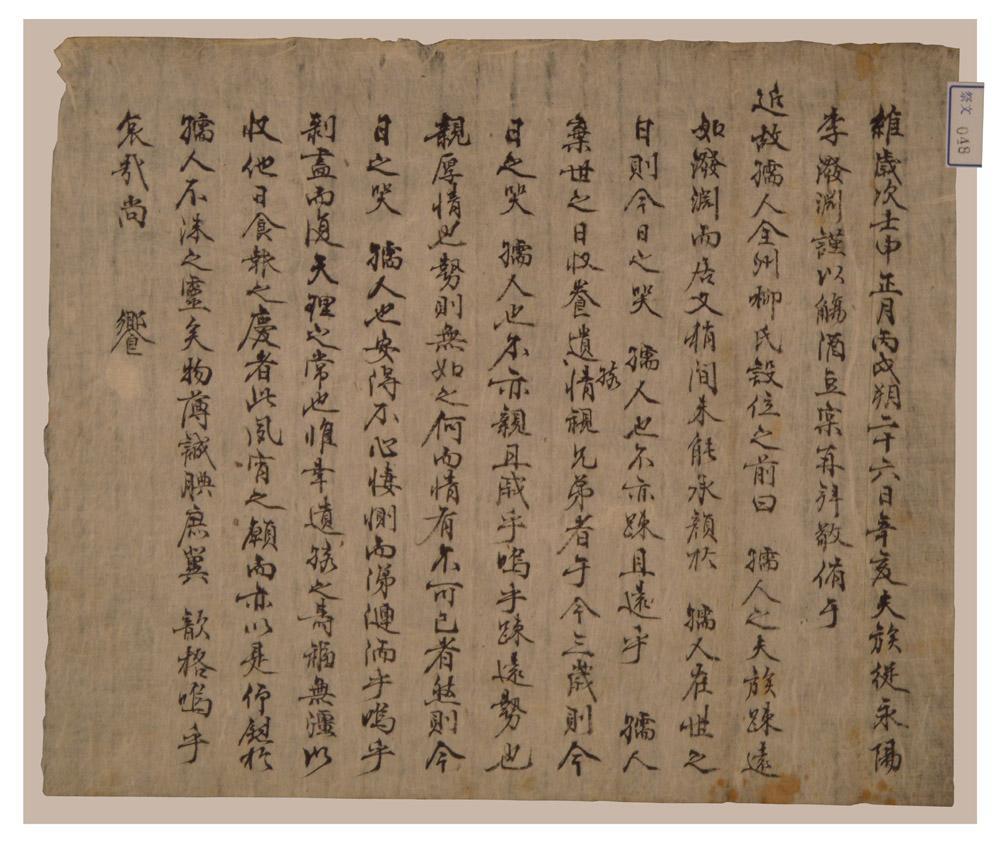 維歲次壬申正月丙戌朔二十六日辛亥夫族從永陽
李潑淵謹以觴酒豆案再拜敬侑于
近故孺人全州柳氏設位之前曰 孺人之夫族踈遠
如潑淵而居又稍間未能承顔於 孺人在世之
日則今日之哭 孺人也不亦踈且遠乎 孺人
棄世之日收養遺孩情視兄弟者于今三歲則今
日之哭 孺人也不亦親且戚乎嗚乎踈遠勢也
親厚情也勢則無如之何而情有不可已者然則今
日之哭 孺人也安得不心悽惻而涕漣洏乎嗚乎
剝盡而復天理之常也惟幸遺孩之壽福無疆以
收他日食報之慶者此夙宵之願而亦以是仰懇於
孺人不沬之靈矣物薄誠腆庶冀 歆格嗚乎
哀哉尚 饗
祭文 048